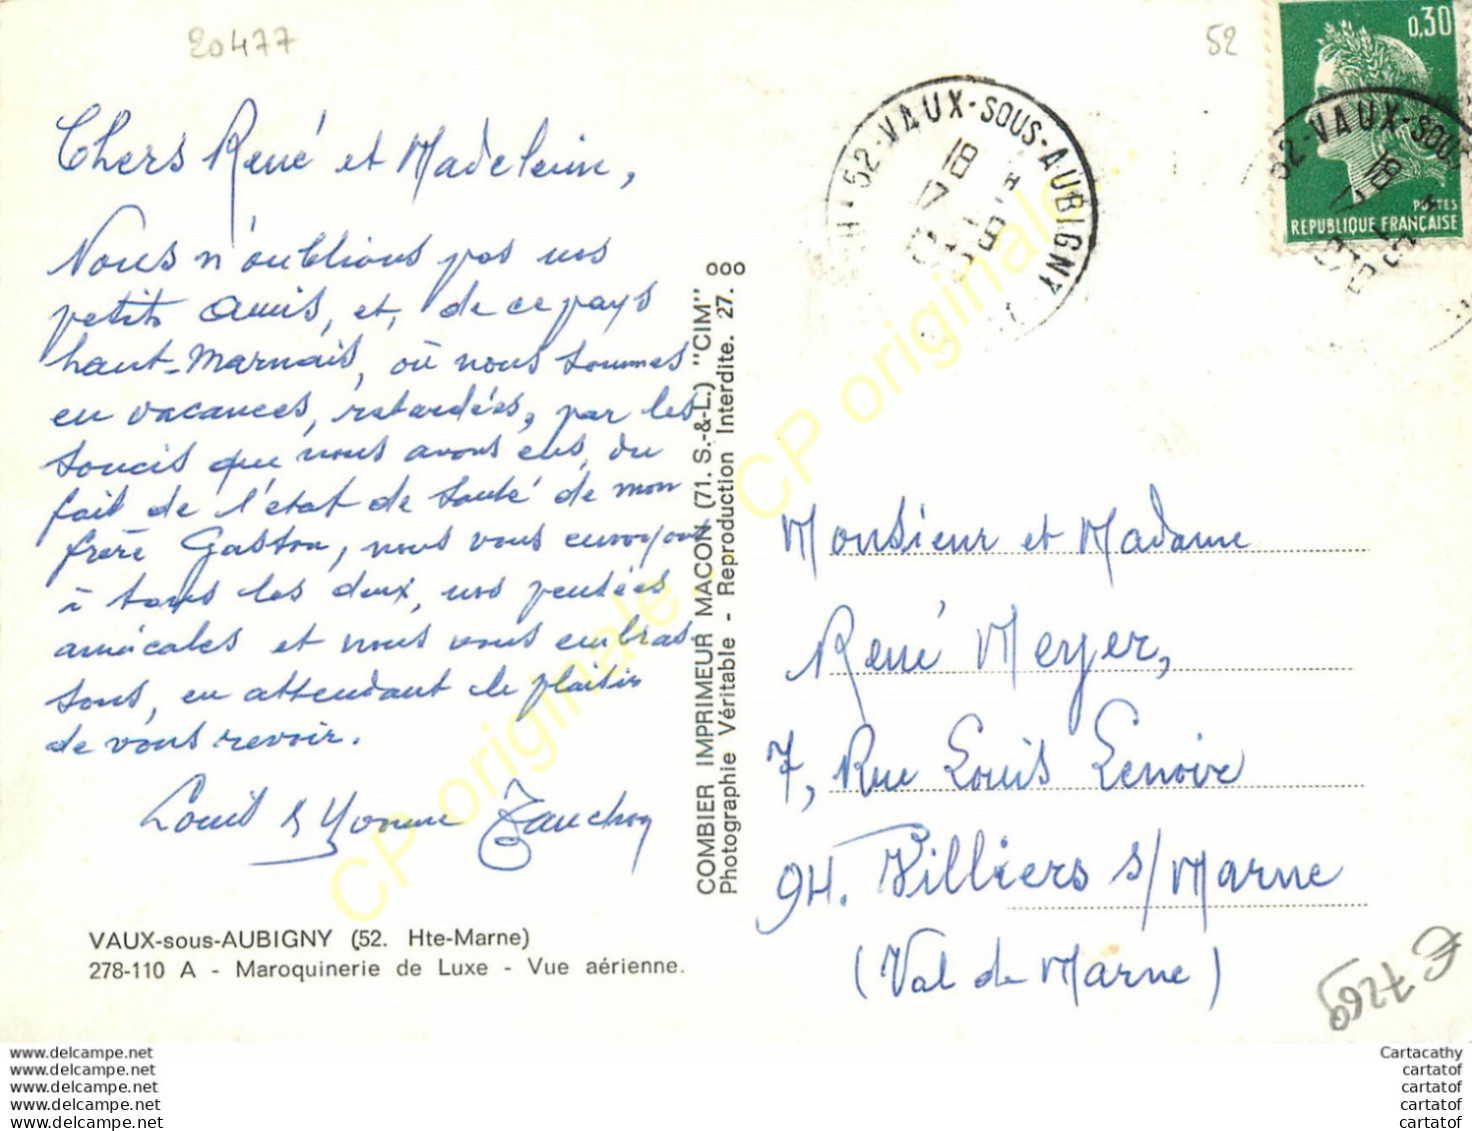 20477
52
0,30
POSTES
REPUBLIQUE FRANÇAISE
52-VAUX-SOUS-AUBIGNY
18 H
17 - 9
52-VAUX-SOUS
18 H
Chers René et Madeleine,
Nous n'oublions pas nos
petits amis, et, de ce pays
haut-Marnais, où nous sommes
en vacances, retardées, par les
soucis que nous avons eus, du
fait de l'état de santé de mon
frère Gaston, nous vous envoyons
à tous les deux, nos pensées
amicales et nous vous embras
sons, en attendant le plaisir
de vous revoir.
Louis & Yvonne
VAUX-sous-AUBIGNY (52. Hte-Marne)
278-110 A - Maroquinerie de Luxe - Vue aérienne.
COMBIER IMPRIMEUR MACON (71. S.-&-L.) "CIM"
Photographie Véritable - Reproduction Interdite. 27. ooo
Monsieur et Madame
René Meyer,
7, Rue Louis Lenoir
94. Villiers s/ Marne
(Val de Marne)
F 7269
CP originale
CP originale
www.delcampe.net
www.delcampe.net
www.delcampe.net
www.delcampe.net
www.delcampe.net
Cartacathy
cartatof
cartatof
cartatof
cartatof